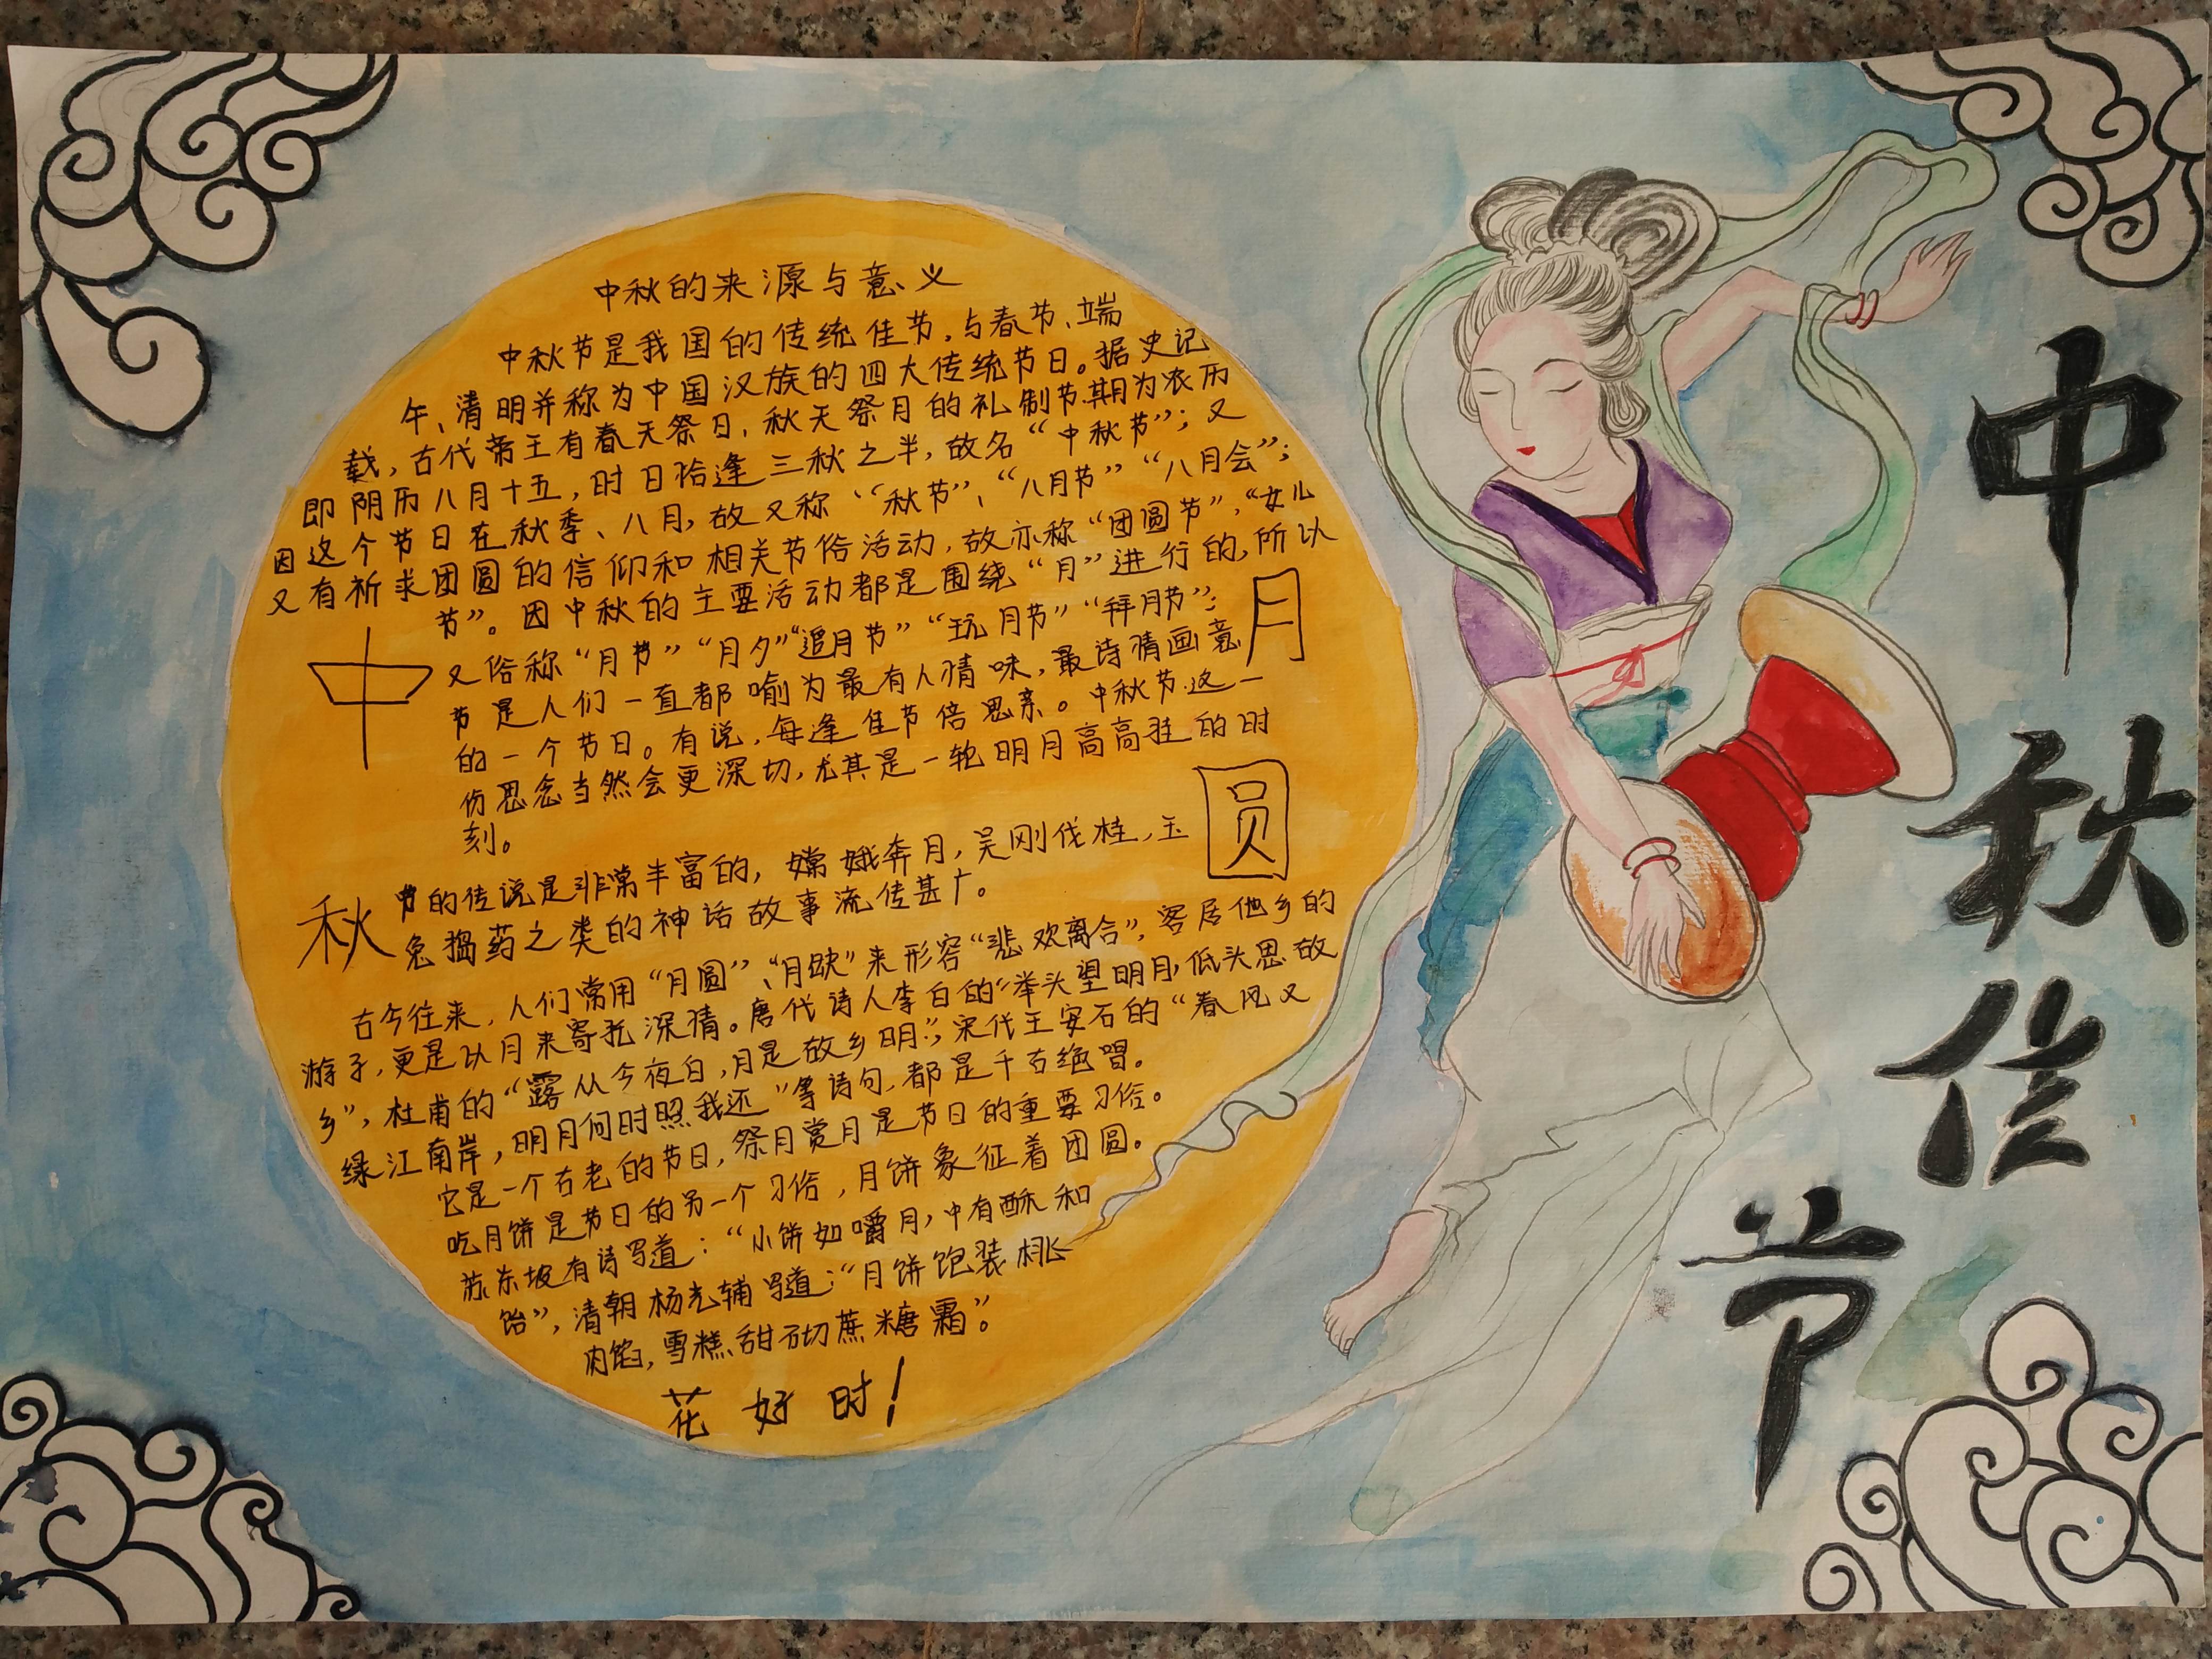 中秋的来源与意义
中秋节是我国的传统佳节，与春节、端
午、清明并称为中国汉族的四大传统节日。据史记
载，古代帝王有春天祭日、秋天祭月的礼制节期为农历
即阴历八月十五，时日恰逢三秋之半，故名“中秋节”；又
因这个节日在秋季、八月，故又称“秋节”、“八月节”“八月会”；
又有祈求团圆的信仰和相关节俗活动，故亦称“团圆节”，“女儿
节”。因中秋的主要活动都是围绕“月”进行的，所以
又俗称“月节”“月夕”“追月节”“玩月节”“拜月节”；
节是人们一直都喻为最有人情味，最诗情画意
的一个节日。有说，每逢佳节倍思亲。中秋节这一
份思念当然会更深切，尤其是一轮明月高高挂的时
刻。
节的传说是非常丰富的，嫦娥奔月，吴刚伐桂，玉
兔捣药之类的神话故事流传甚广。
古今往来，人们常用“月圆”、“月缺”来形容“悲欢离合”，客居他乡的
游子，更是以月来寄托深情。唐代诗人李白的“举头望明月，低头思故
乡”，杜甫的“露从今夜白，月是故乡明”；宋代王安石的“春风又
绿江南岸，明月何时照我还”等诗句，都是千古绝唱。
它是一个古老的节日，祭月赏月是节日的重要习俗。
吃月饼是节日的另一个习俗，月饼象征着团圆。
苏东坡有诗写道：“小饼如嚼月，中有酥和
饴”，清朝杨光辅写道：“月饼饱装桃
肉馅，雪糕甜砌蔗糖霜”。
花好时！
中
秋
月
圆
中
秋
佳
节